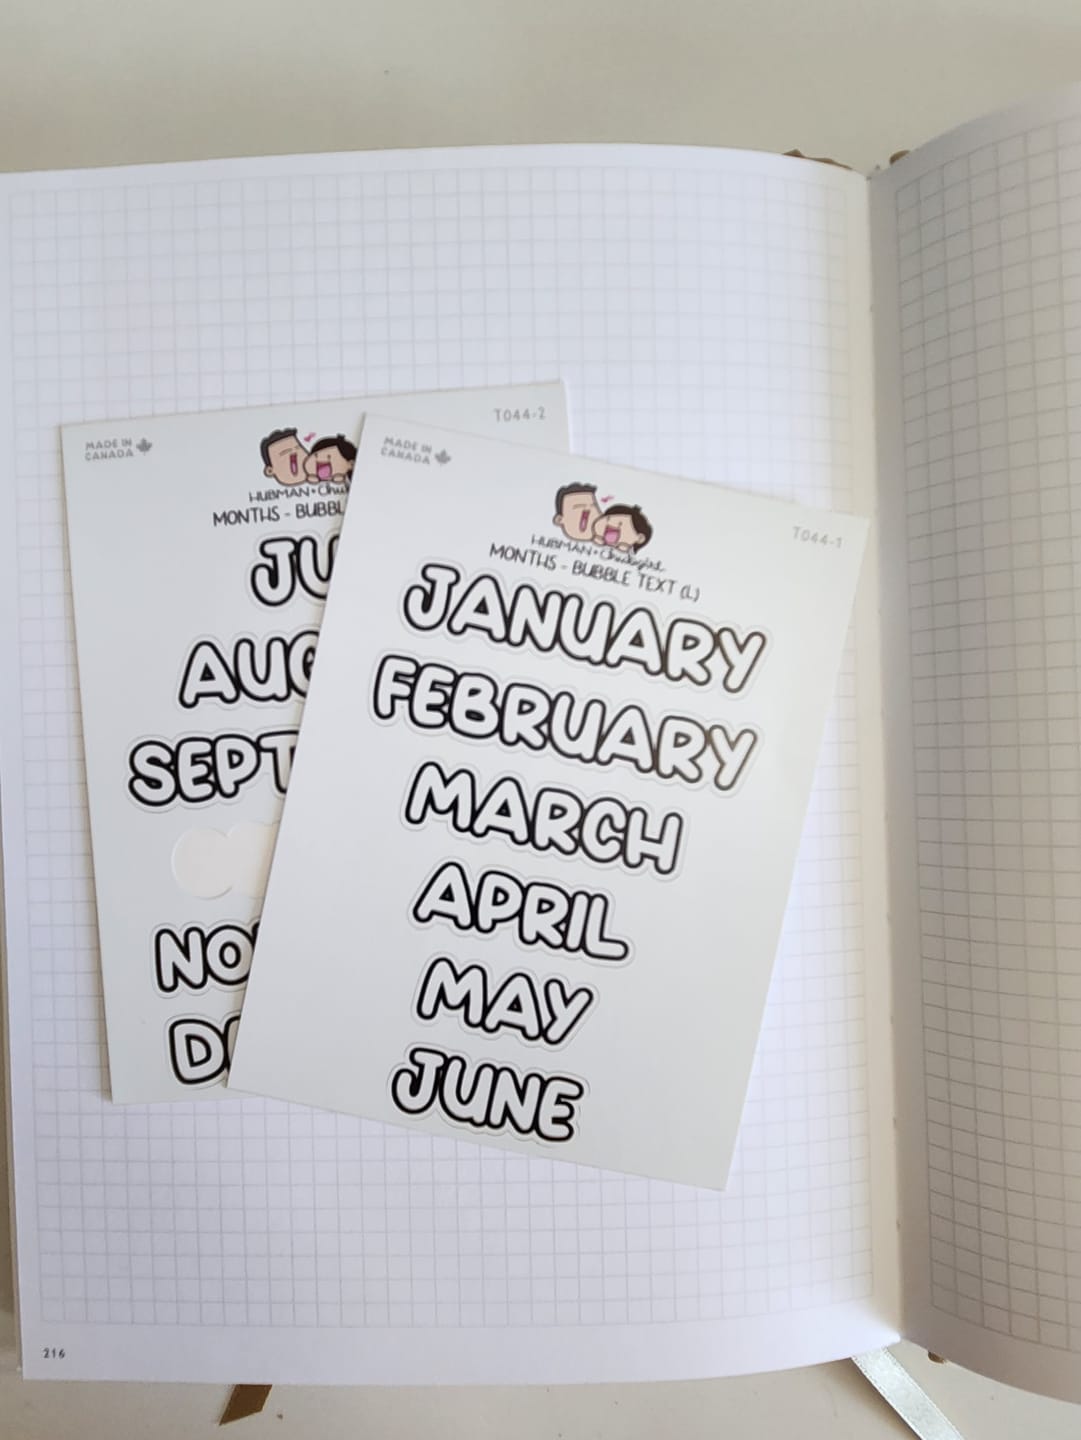 MADE IN
CANADA
T044-2
HUBMAN + Chu
MONTHS - BUBBL
JU
AUG
SEPT
NO
D
MADE IN
CANADA
T044-1
HUBMAN + Chubgirl
MONTHS - BUBBLE TEXT (L)
JANUARY
FEBRUARY
MARCH
APRIL
MAY
JUNE
216